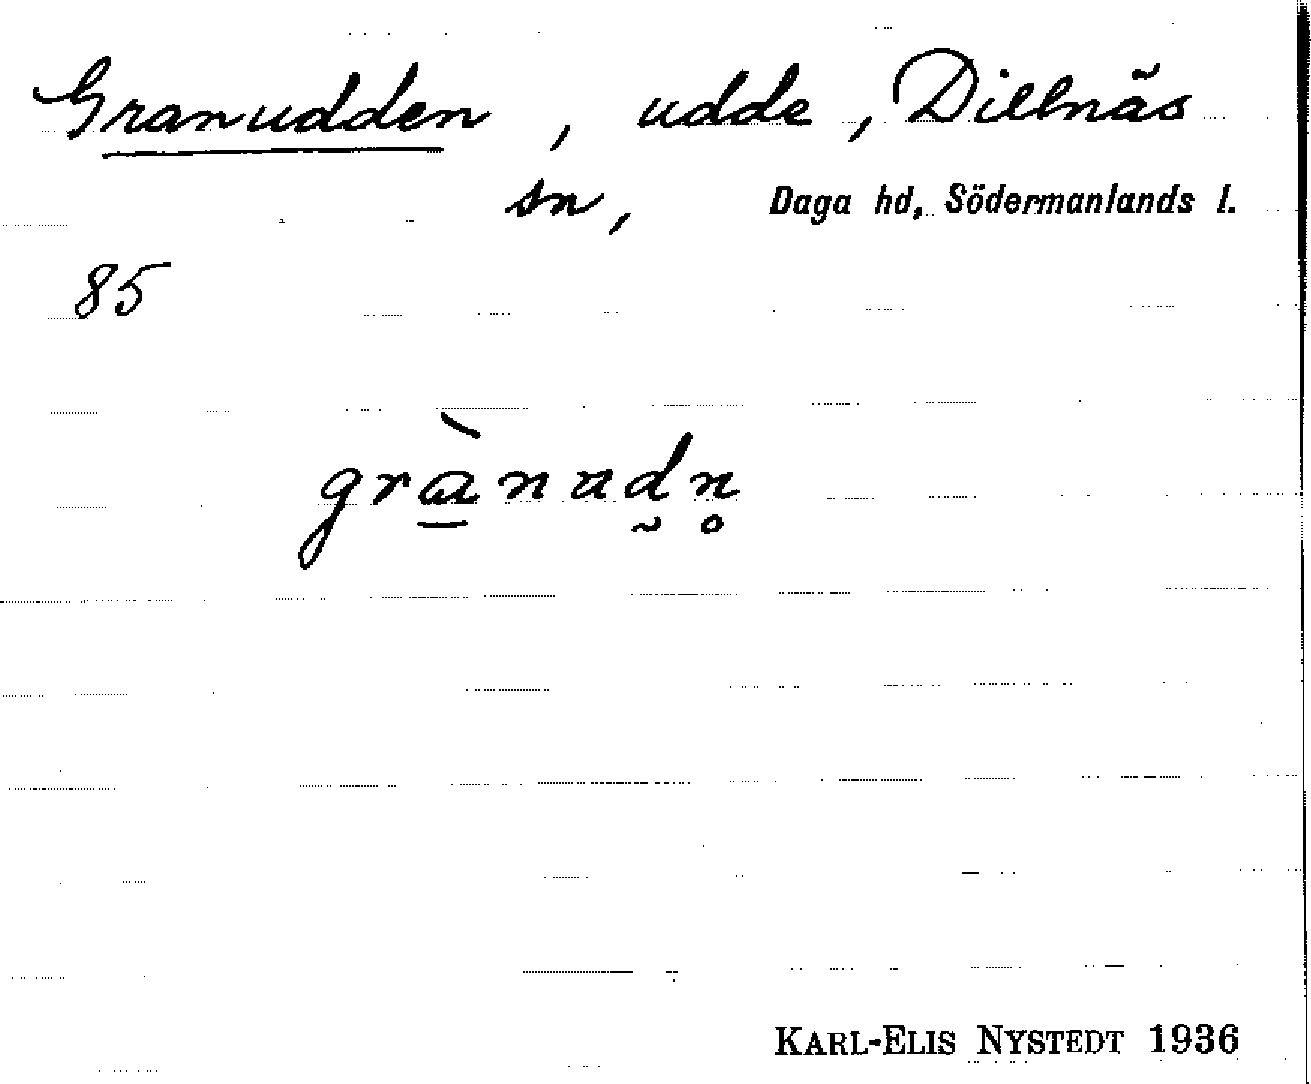 Granudden, udde, Dillnäs
sn, Daga hd, Södermanlands l.
85
grànudn̥
KARL-ELIS NYSTEDT 1936